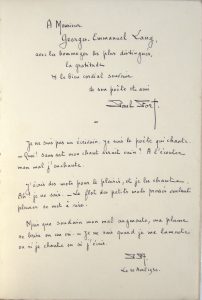 A Monsieur
Georges-Emmanuel Lang,
avec les hommages les plus distingués,
la gratitude
et le bien cordial souvenir
de son poète et ami
Paul Fort
Je ne suis pas un écrivain. Je suis le poète qui chante.
Quoi! sans art mon chant serait vain? A l'écouter
mon mal s'enchante.
J'écris des mots pour le plaisir, et je les chante
où je ne sais. Le flot des petits mots pressés
mot à
Mais que soudain mon mal augmente, ma plume
se brise ou Je ne sais quand je me lamente
ou si je chante ou si j'écris.